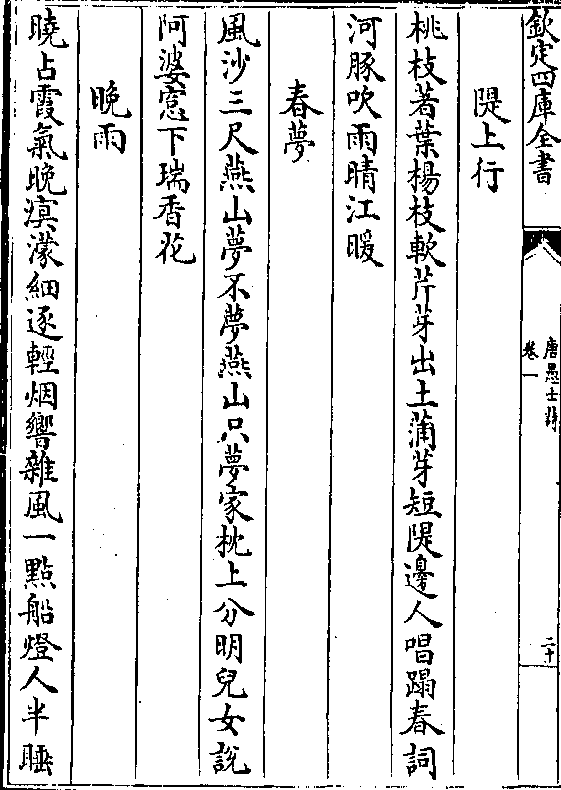 欽定四庫全書
唐愚士詩
卷一
二十
隄上行
桃枝著葉楊枝軟芹芽出土蒲芽短隄邊人唱踢春詞
河豚吹雨晴江暖
春夢
風沙三尺燕山夢不夢燕山只夢家枕上分明兒女說
阿婆窓下瑞香花
晚雨
曉占霞氣晚溟濛細逐輕烟響雜風一點船燈人半睡